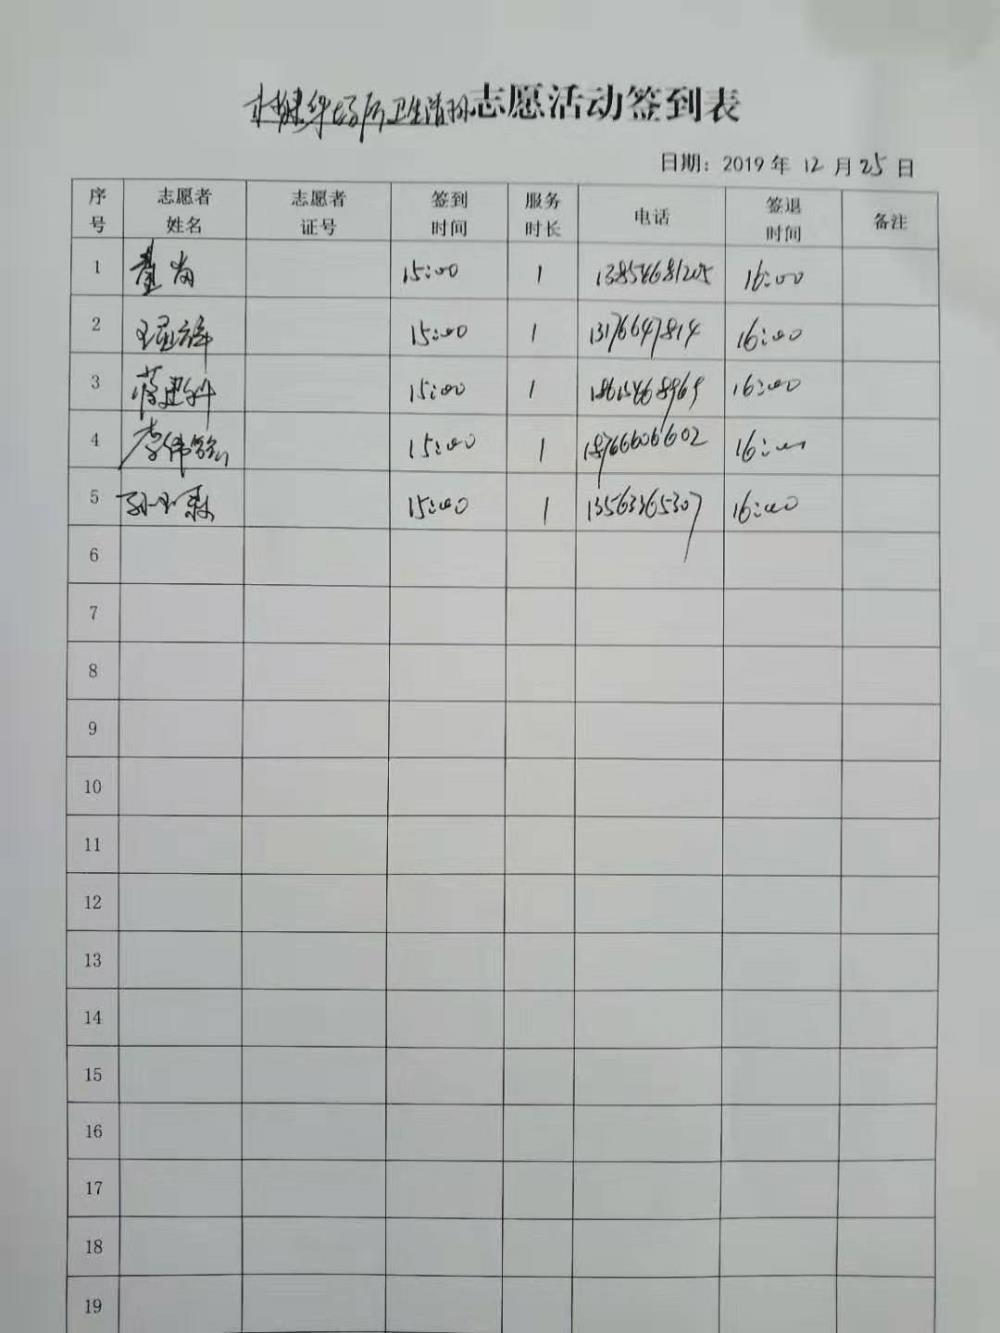 卫生清扫志愿活动签到表
日期：2019年12月25日
序号 志愿者姓名 志愿者证号 签到时间 服务时长 电话 签退时间 备注
1 15:00 1 16:00
2 15:00 1 13176647814 16:00
3 15:00 1 16:00
4 李伟 15:00 1 18766606602 16:00
5 孙 15:00 1 13563365307 16:00
6
7
8
9
10
11
12
13
14
15
16
17
18
19